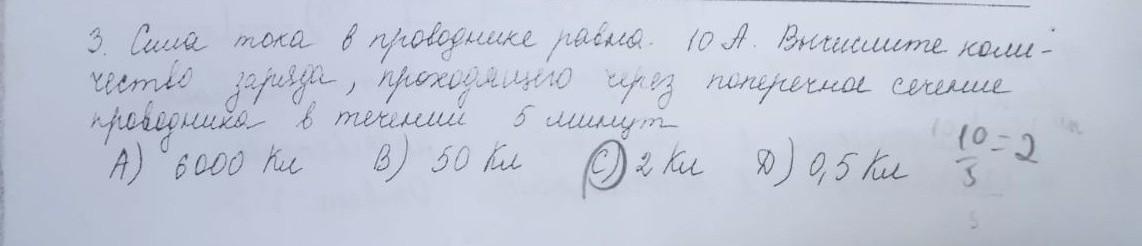 3. Сила тока в проводнике равна. 10 А. Вычислите коли-
чество заряда, проходящего через поперечное сечение
проводника в течении 5 минут
A) 6000 Кл B) 50 Кл C) 2 Кл D) 0,5 Кл
10/5 = 2